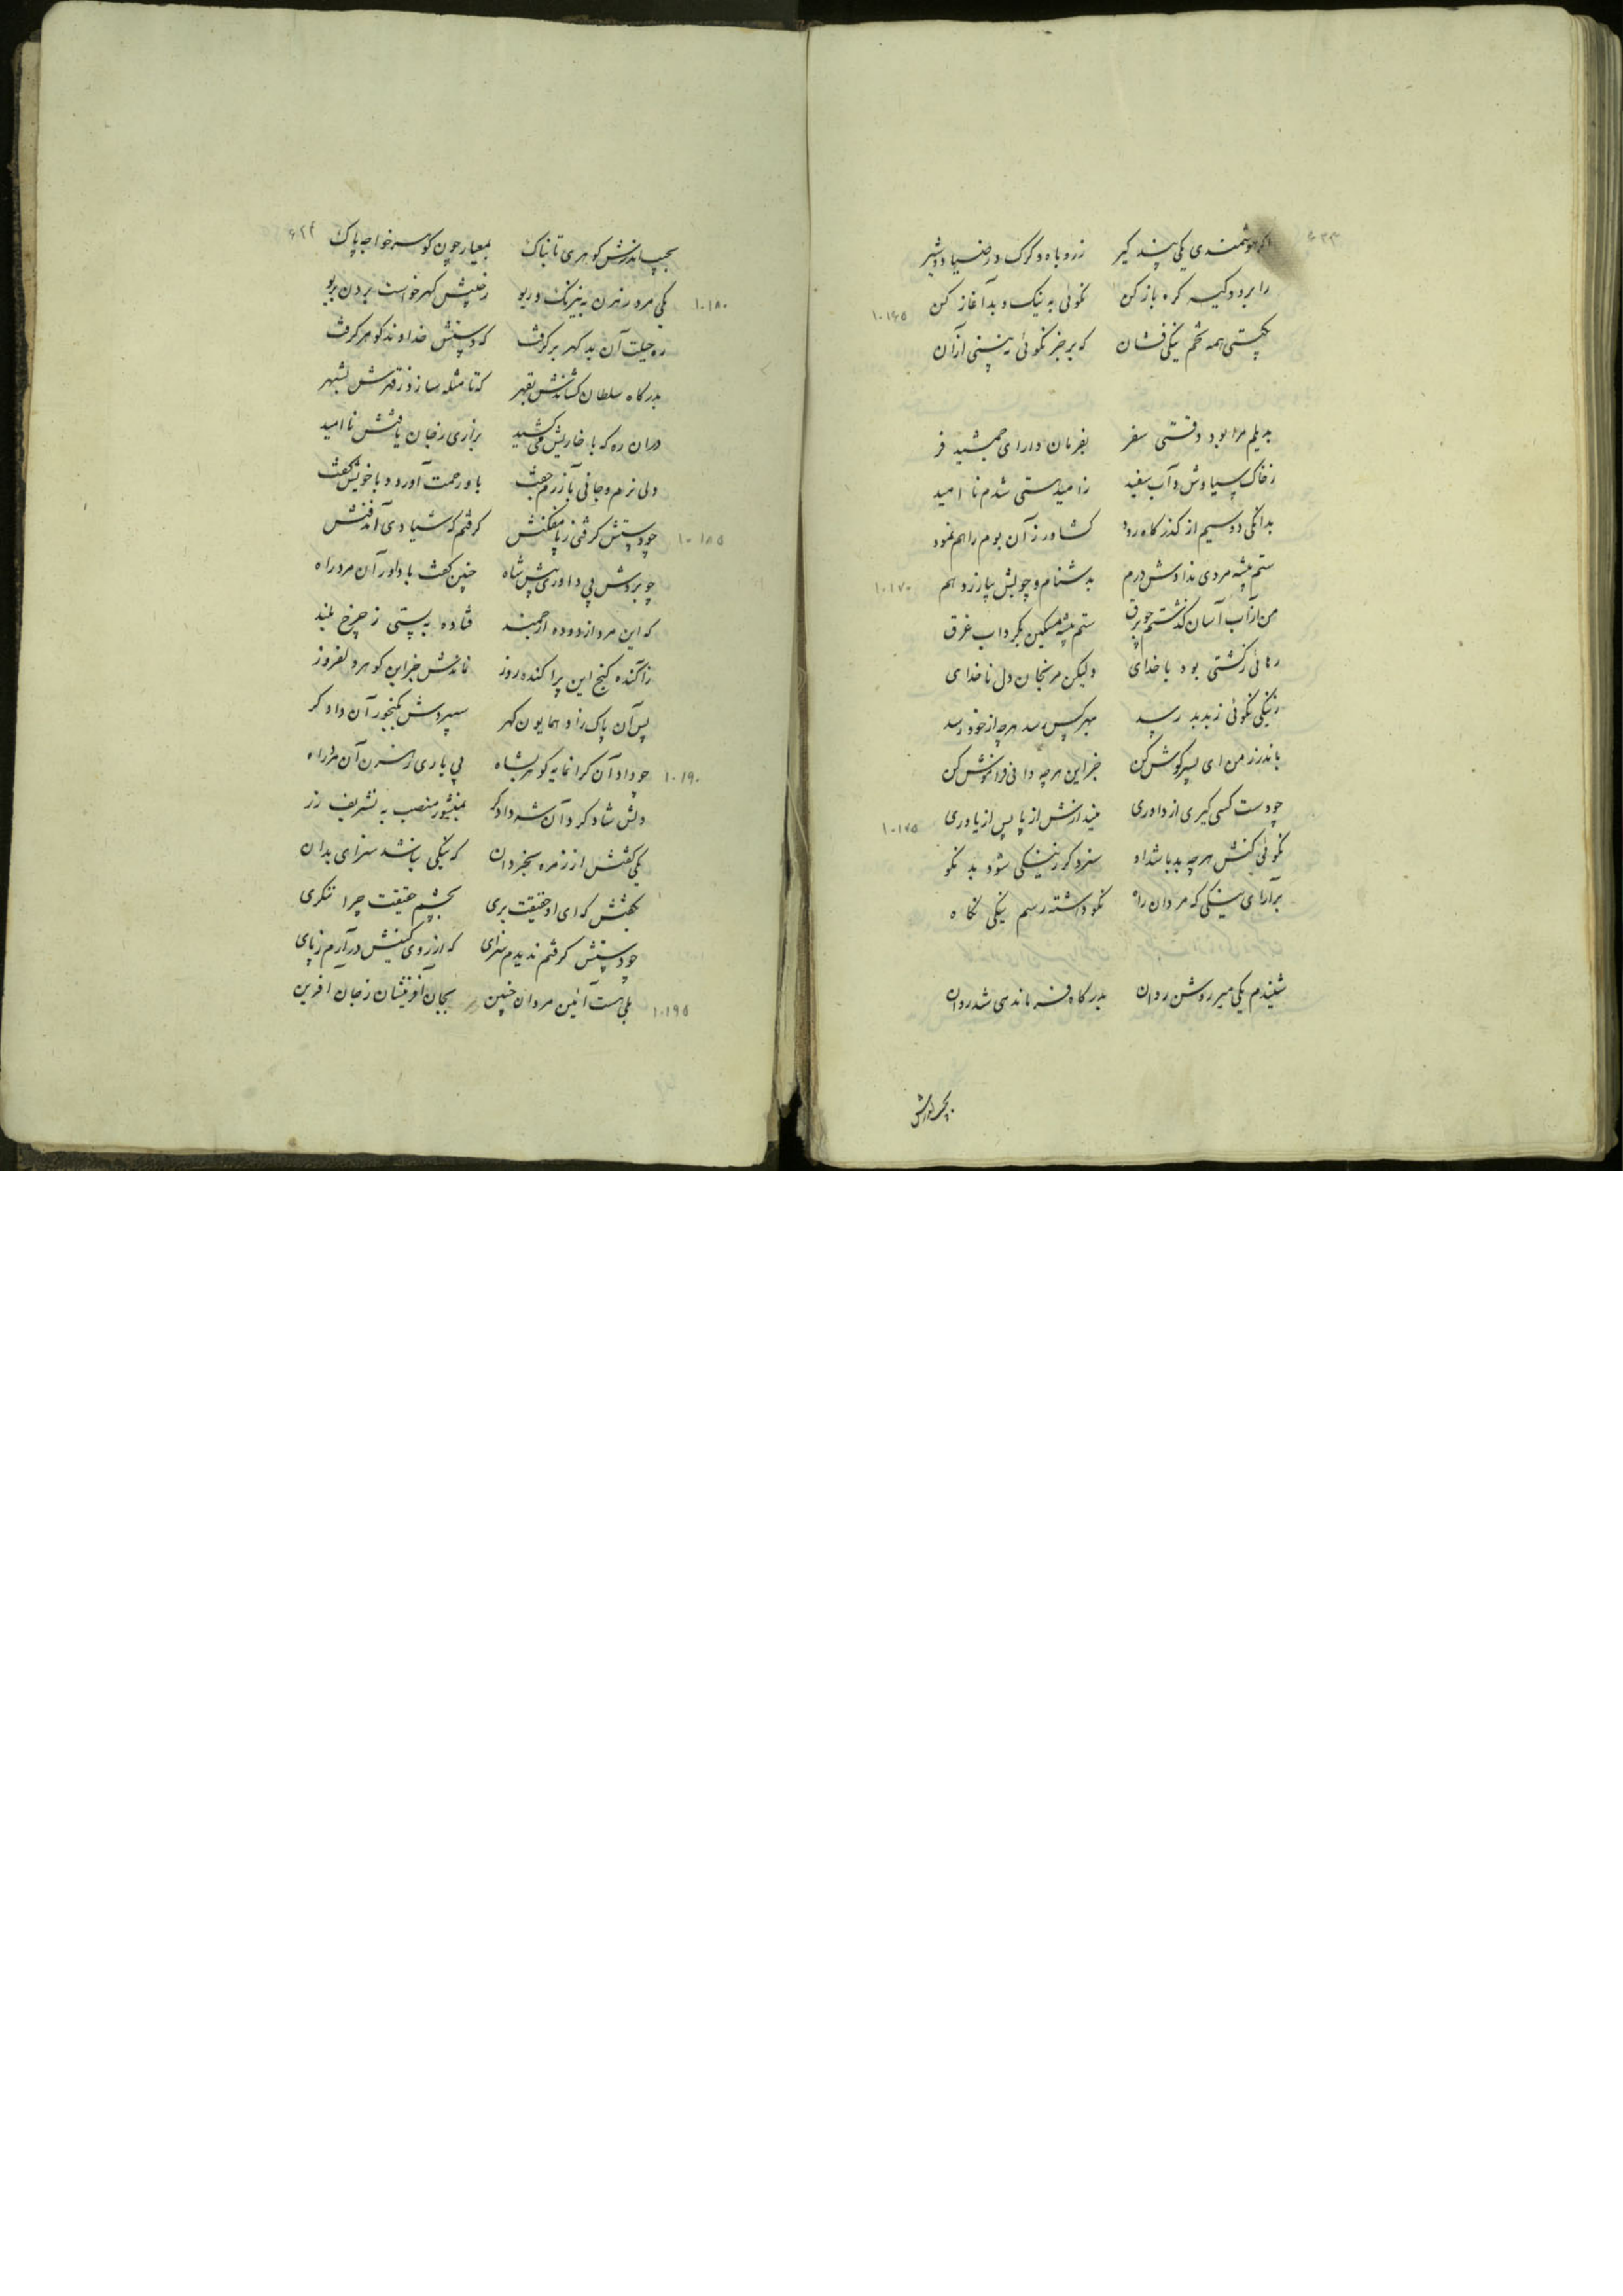 ۶۲۳
اگر هوشمندی یکی پند گیر ز روباه و گرگ و
را بر دو کیسه گره باز کن نکوئی به نیک و بد آغاز کن
۱۰۱۶۵
بگیتی همه تخم نیکی فشان که بر جز نکوئی نبینی از آن
بدیلم مرا بود وقتی سفر بفرمان دارای جمشید فر
ز خاک سیاوش و آب سفید ز امید هستی شدم ناامید
بدانگی دو سیم از گذرگاه رود کشاورز آن بوم راهم نمود
ستم پیشه مردی ندادش درم بدشنام و چوبش بیازرد هم
۱۰۱۷۰
من از آب آسان گذشتم چو برق ستم پیشه مسکین بگرداب غرق
رهائی ز کشتی بود با خدای ولیکن مرنجان دل ناخدای
ز نیکی نکوئی ز بد بد رسد بهر کس رسد هر چه از خود رسد
باندرز من ای پسر گوش کن جز این هر چه دانی فراموش کن
چو دست کسی گیری از داوری میندازش از پا پس از یاوری
۱۰۱۷۵
نکوئی کنش هر چه بد باشد او سزد کو ز نیکی شود بد نکو
برآرای نیکی که مردان راه نکو داشته رسم نیکی نگاه
شنیدم یکی میر روشن روان بدرگاه فرماندهی شد روان
۶۲۴
گوهری تابناک بمعیار چون گوهر خواجه پاک
یکی مرد رهزن به نیرنگ و ریو ز جیبش گهر خواست بردن بریو
۱۰۱۸۰
ره حیلت آن بد گهر برگرفت که دستش خداوند گوهر گرفت
بدرگاه سلطان کشاندش بقهر که تا مثله سازد ز قهرش بشهر
در آن ره که با خاریش می‌کشید بزاری ز جان یافتش ناامید
دلی نرم و جانی بآزرم جفت باو رحمت آورد و با خویش گفت
چو دستش گرفتی ز پا مفکنش گرفتم که شیادی آمد فنش
۱۰۱۸۵
چو بردش پی داوری پیش شاه چنین گفت با داور آن مرد راه
که این مرد از دوده ارجمند فتاده به پستی ز چرخ بلند
ز آکنده گنج این پراکنده روز نماندش جز این گوهر دلفروز
پس آن پاک زاد همایون گهر سپردش بگنجور آن دادگر
چو داد آن گرانمایه گوهر بشاه پی یاری رهزن آن مرد راه
۱۰۱۹۰
دلش شاد کرد آن شه دادگر بمنشور منصب به تشریف زر
یکی گفتش از زمره بخردان که نیکی نباشد سزای بدان
بگفتش که ای از حقیقت بری بچشم حقیقت چرا ننگری
چو دستش گرفتم ندیدم سزای که از روی کینش درآرم ز پای
بلی هست آئین مردان چنین بجان آفرینشان ز جان آفرین
۱۰۱۹۵